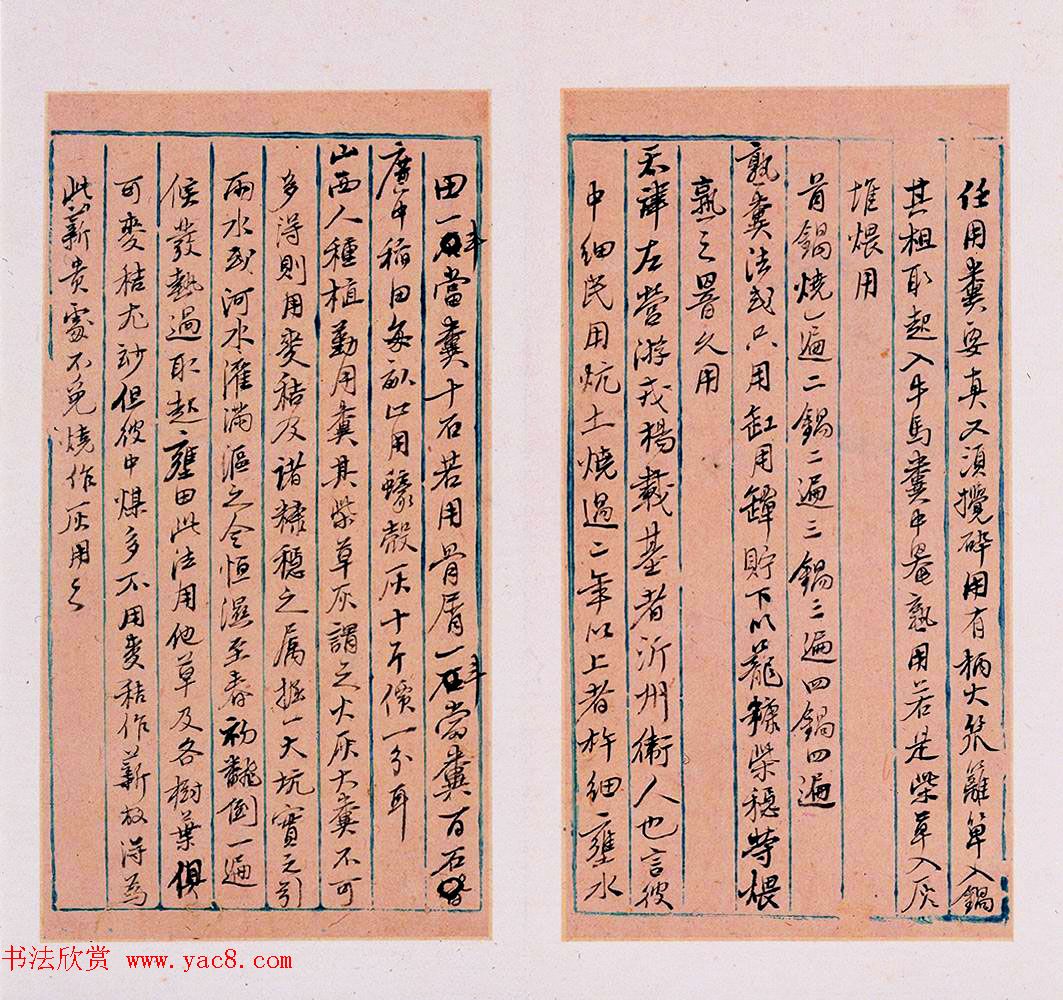 任用糞要真又須攪碎用有柄大笊籬箄入鍋
其粗取起入牛馬糞中罨熟用若是柴草入灰
堆煨用
首鍋燒一遍二鍋二遍三鍋三遍四鍋四遍
熟糞法或只用缸用罈貯下以礱糠柴穩等煨
熟之畧久用
天津左營游戎楊載基者沂州衛人也言彼
中細民用炕土燒過二年以上者杵細壅水
田一斗當糞十石若用骨屑一斗當糞百石
廣中稻田每畝止用蠔殼灰十斤價一分耳
山西人種植勤用糞其柴草灰謂之火灰大糞不可
多得則用麥秸及諸糠穗之屬掘一大坑實之引
雨水或河水灌滿漚之令恒濕至春初翻倒一遍
候發熱過取起壅田此法用他草及各樹葉俱
可麥秸尤妙但彼中煤多不用麥秸作薪故得為
此薪貴處不免燒作灰用之
书法欣赏 www.yac8.com